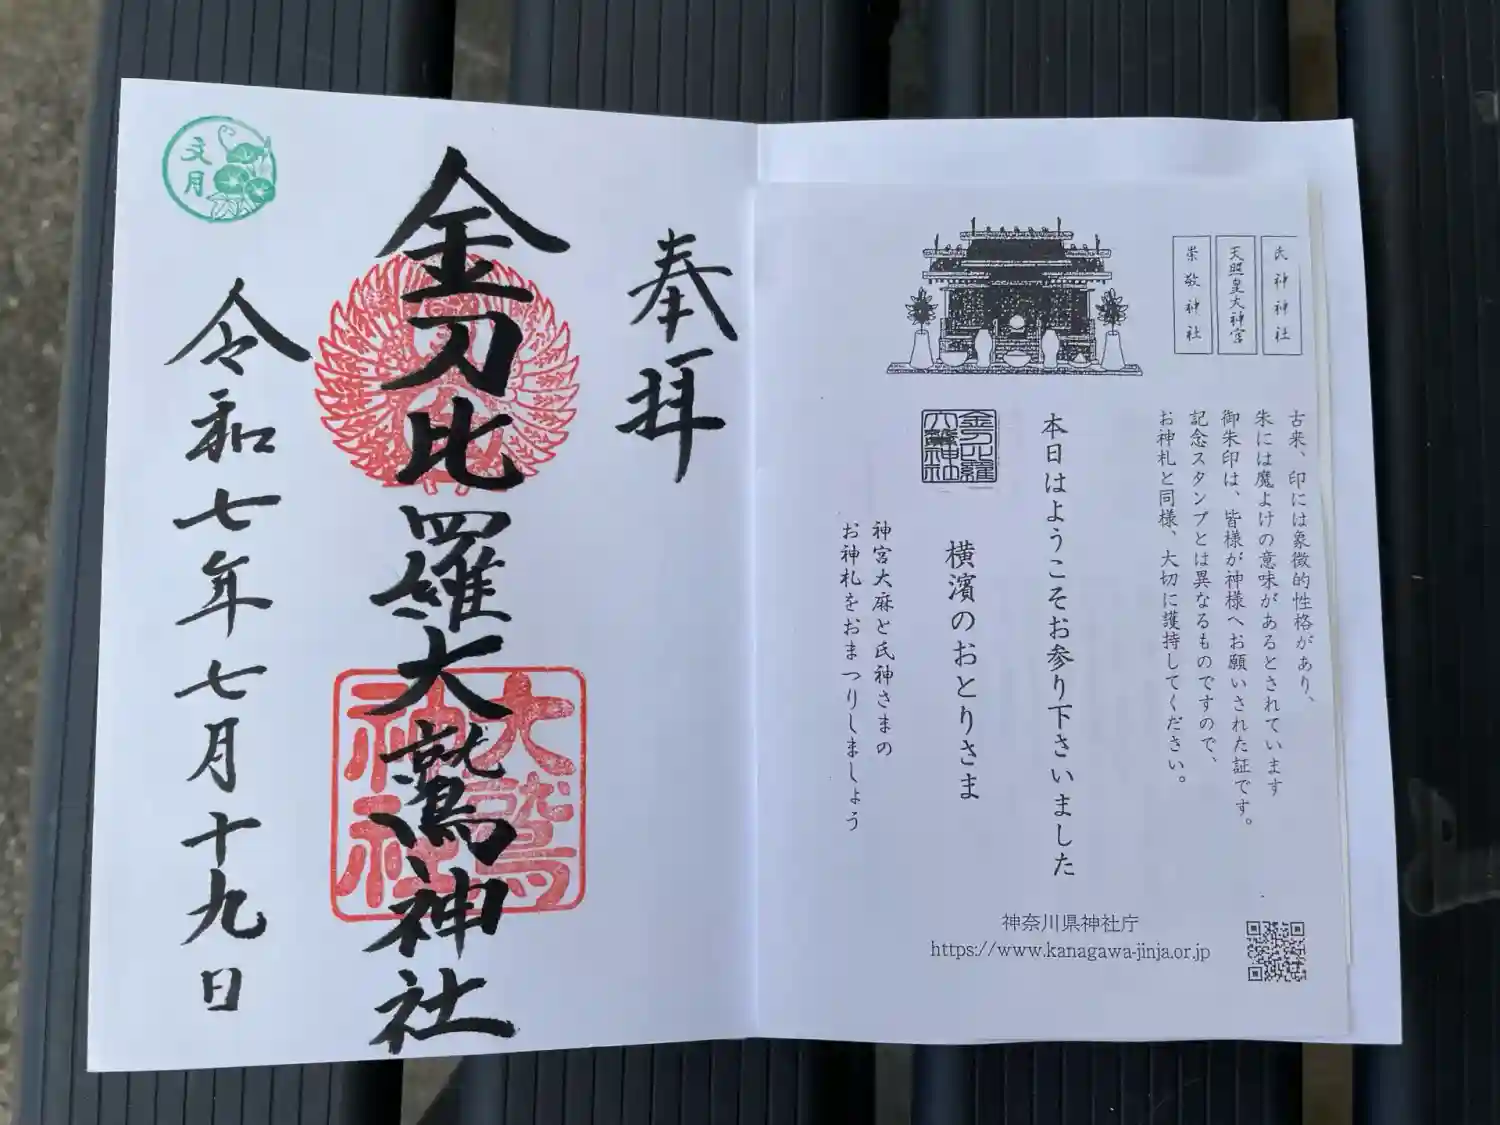 氏神神社
天照皇大神宮
崇敬神社
古来、印には象徴的性格があり、
朱には魔よけの意味があるとされています
御朱印は、皆様が神様へお願いされた証です。
記念スタンプとは異なるものですので、
お神札と同様、大切に護持してください。
本日はようこそお参り下さいました
横濱のおとりさま
金刀比羅
大鷲神社
神宮大麻と氏神さまの
お神札をおまつりしましょう
神奈川県神社庁
https://www.kanagawa-jinja.or.jp
奉拝
金刀比羅大鷲神社
大鷲
神社
令和七年七月十九日
文月